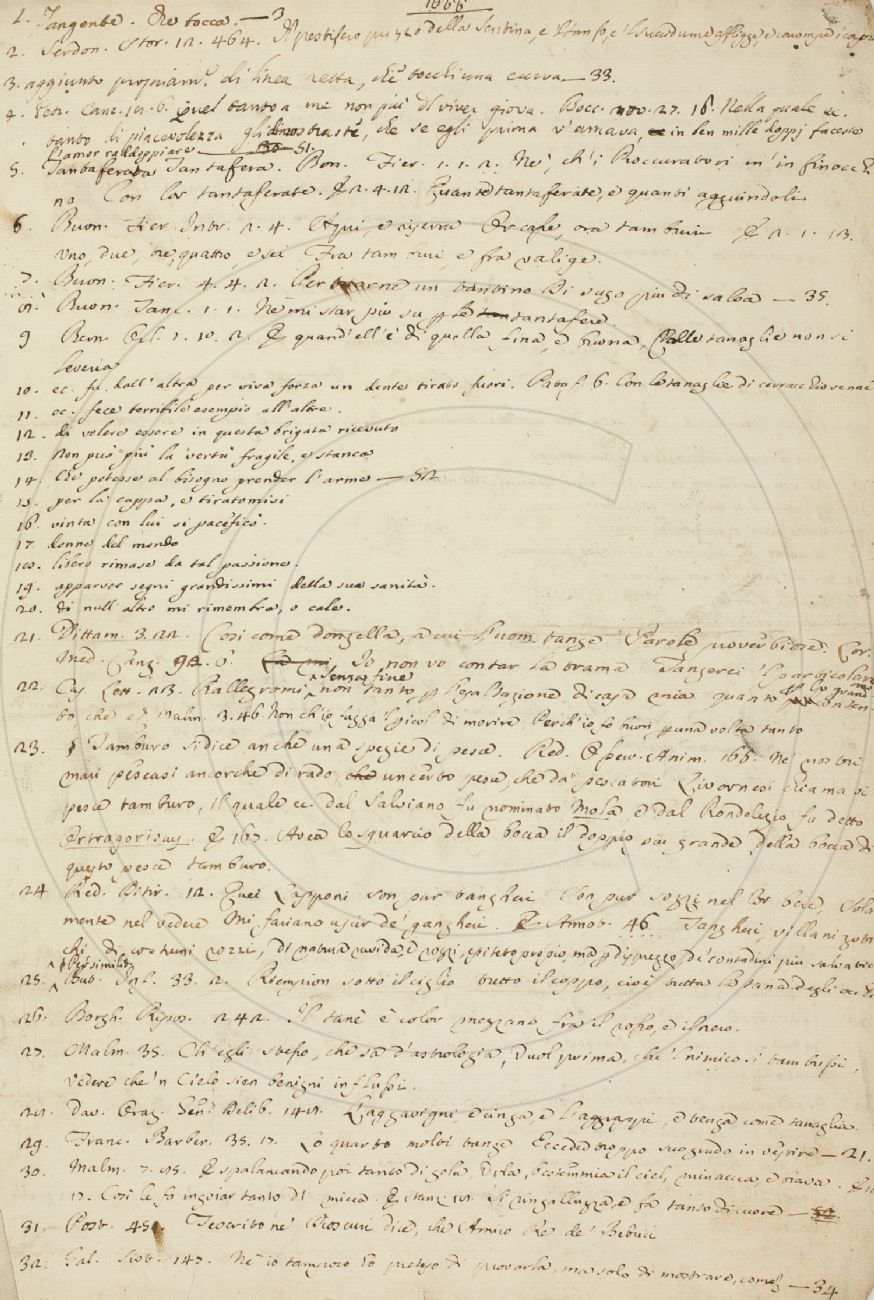 1666
1. Tangente. Che tocca. — 3
2. Serdon. Stor. 12. 464. Il pestifero puzzo della Sentina, e
3. aggiunto propriam.e di linea retta, che tocchi una curva — 33.
4. Petr. Canz. 10. 6. Quel tanto a me non più di viver giova. Bocc. nov. 27. 18. Nella quale ec.
tanto di piacevolezza gli dimostraste, che se egli prima v'amava, in ben mille doppj faceste
l'amor raddoppiare — 51.
5. Tantaferata Tantafera. Bon. Fier. 1. 1. 2. Ne', ch'i Proccuratori m'infinocchi
no Con lor tantaferate. E 2. 4. 12. Quante tantaferate, e quanti agguindoli
6. Buon. Fier. Intr. 2. 4. Qui, e riserra Or cafe, ora tamburi E 2. 1. 13.
Uno, due, tre, quattro, e sei Fra tamburi, e fra valige.
7. Buon. Fier. 4. 4. 2. Per trarne un tantino Di sugo più di salsa — 35.
8. Buon. Tanc. 1. 1. Ne mi star più su p le tantafere.
9 Bern. Orl. 1. 10. 2. E quand'ell'è di quella fina, e buona, Colle tanaglie non si
leveria
10. ec. fu dall'altra per viva forza un dente tirato fuori. Pataf. 6. Con le tanaglie di
11. ec. fece terribile esempio all'altre.
12. di volere essere in questa brigata ricevuto
13. non può più la vertù fragile, e stanca
14. Che potesse al bisogno prender l'arme — 52
15. per la cappa, e tiratomisi
16. vinta con lui si pacificò.
17. donne del mondo
18. libero rimase da tal passione.
19. apparver segni grandissimi della sua sanità.
20. di null'altro mi rimembra, o cale.
21. Dittam. 3. 22. Così come donzella, a cui l'uom tange Parole Lor.
Med. Canz. 92. 6. Io non vo contar la trama Tangerei 'l particolare
22. Car. Lett. 23. Rallegromi senza fine non tanto p l'espettazione di casa mia quanto p la gran conten
to che Malm. 3. 46 Non ch'io fugga 'l pericol di morire Perch'io fo buon p una volta tanto
23. Tamburo si dice anche una spezie di pesce. Red. Osserv. Anim. 166. Ne' nostri
mari pescasi ancorchè di rado un certo pesce, che da' pescatori Livornesi chiamasi
pesce tamburo, il quale ec. dal Salviano fu nominato Mola e dal Rondelezio fu detto
Ortragoriscus. E 167. Avea lo squarcio della bocca il doppio più grande della bocca di
questo pesce tamburo.
24 Red. Ditir. 12. Quei Lapponi son pur tangheri Son pur sozzi nel lor bere Sola
mente nel vedere Mi fariano uscir de' gangheri. E Annot. 46. Tangheri, villani zoti
chi, di costumi rozzi, di natura ruvida, e rozzi, epiteto proprio, ma p disprezzo, de' contadini più salvatici
Per similit.
25. But. Inf. 33. 2. Riempion sotto il ciglio tutto il coppo, cioè tutta la tana degli occhi
26. Borgh. Ripos. 242. Il tanè è color mezzano fra il rosso, e il nero.
27. Malm. 35. Ch'egli stesso, che sa d'astrologia, Vuol prima, che 'l nimico si tambussi,
Vedere che 'n Cielo sien benigni influssi.
28. Dav. Oraz. Gen. Delib. 148. L'aggavigni, e cinga, e l'aggrappi, e tenga come tanaglia.
29. Franc. Barber. 35. 17. Lo quarto molti tange Eccede troppo suo grado in vestire — 21.
30. Malm. 7. 48. E spalancando poi tanto di gola, Urla, bestemmia il ciel, minaccia, e brava. E
17. Così le fo ingoiar tanto di micca. E stanz. 18. Si ringalluzza, e fa tanto di cuore —
31. Post. 451 Teocrito ne' Dioscuri dice, che Amico Re de' Bebrici
32. Gal. Sist. 147. Nè io tampoco ho preteso di provarla, ma solo di mostrare, come — 34